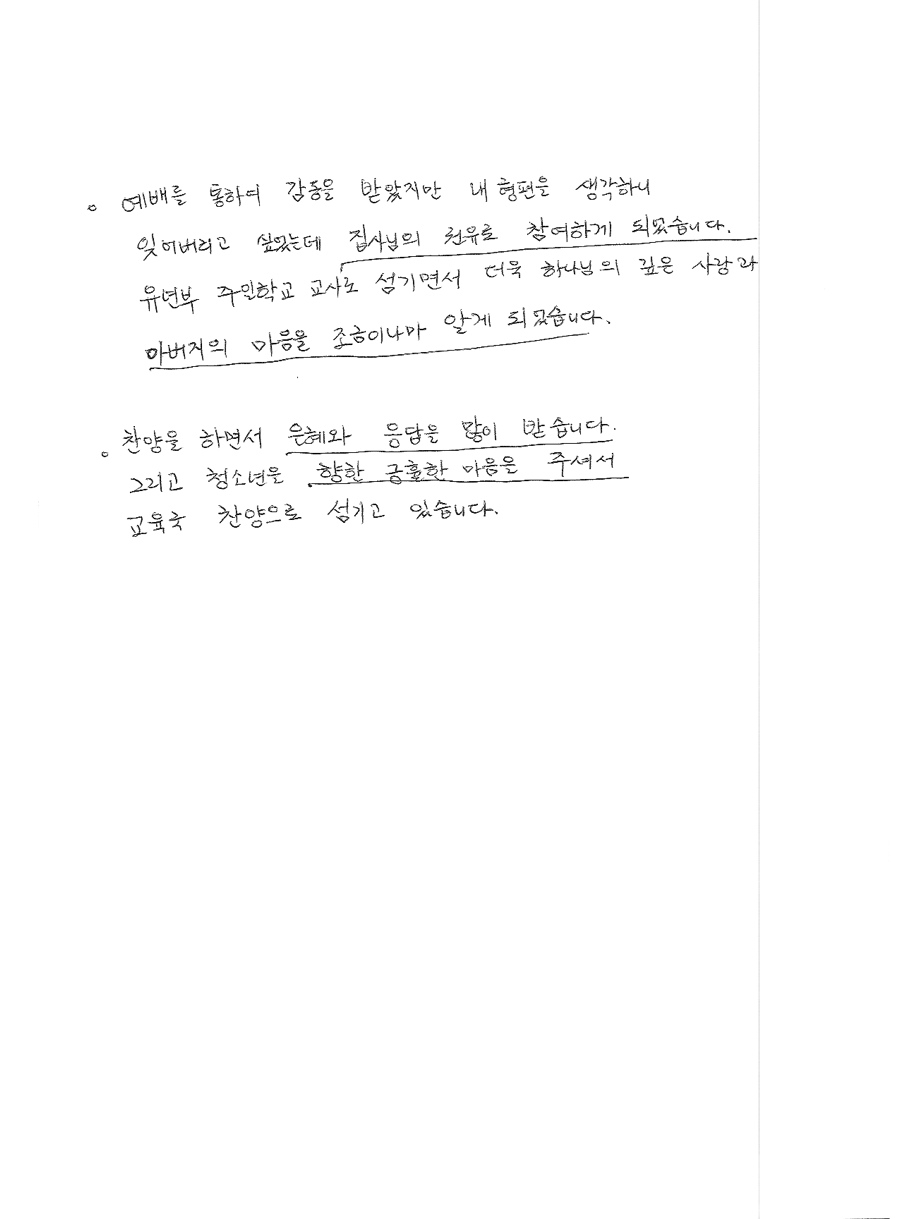 예배를 통하여 감동을 받았지만 내 형편을 생각하니
잊어버리고 싶었는데 집사님의 권유로 참여하게 되었습니다.
유년부 주일학교 교사로 섬기면서 더욱 하나님의 깊은 사랑과
아버지의 마음을 조금이나마 알게 되었습니다.
찬양을 하면서 은혜와 응답을 많이 받습니다.
그리고 청소년을 향한 긍휼한 마음을 주셔서
교육국 찬양으로 섬기고 있습니다.